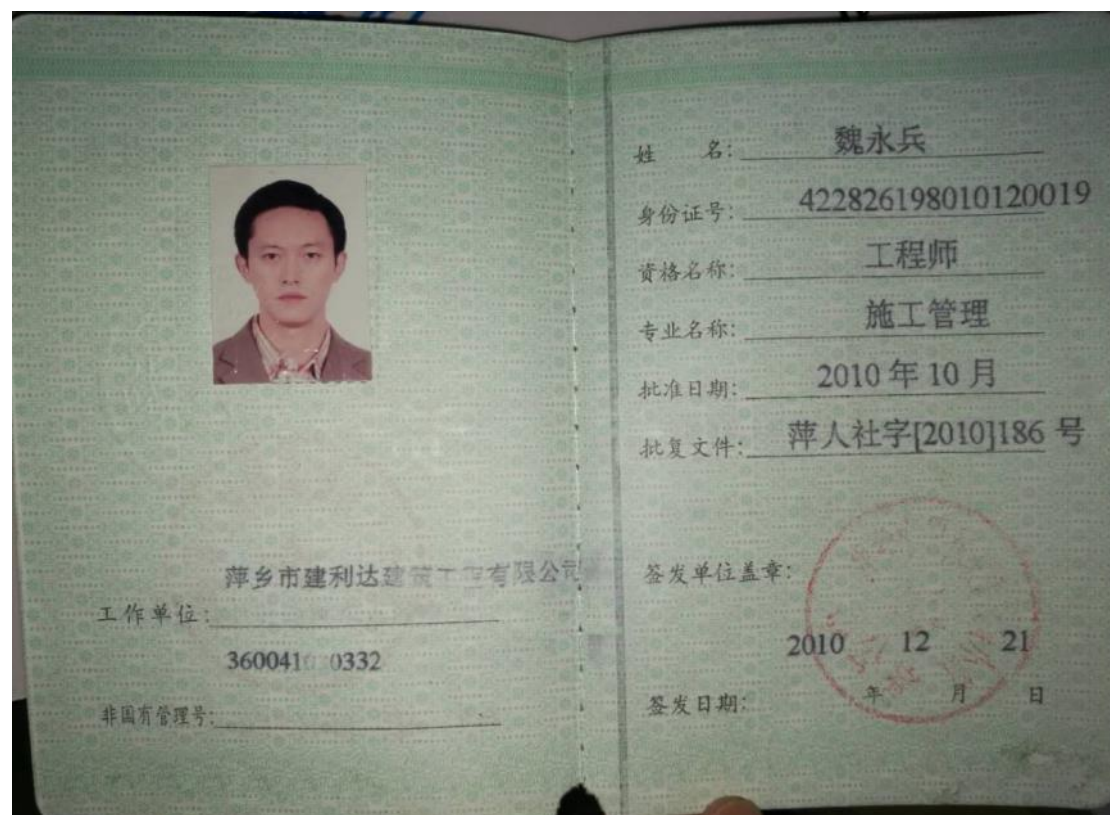 萍乡市建利达建筑工程有限公司
工作单位:
非国有管理号:
姓 名: 魏永兵
身份证号: 422826198010120019
资格名称: 工程师
专业名称: 施工管理
批准日期: 2010年10月
批复文件: 萍人社字[2010]186号
签发单位盖章:
2010 12 21
签发日期: 年 月 日